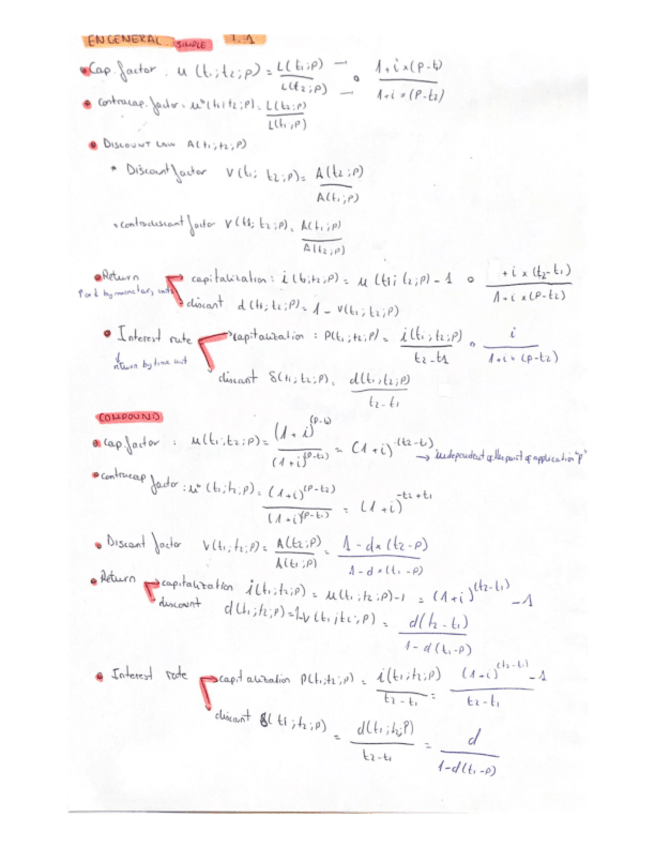 EN GENERAL. SIMPLE 1.1
• Cap. factor. u (t₁;t₂;p) = L(t₁;p) / L(t₂;p) → o 1+i×(p-t₁) / 1+i×(p-t₂)
• Contracap. factor = u*(t₁;t₂;p) = L(t₂;p) / L(t₁;p)
• DISCOUNT LAW A(t₁;t₂;p)
* Discount factor V(t₁; t₂;p) = A(t₂;p) / A(t₁;p)
• contradiscount factor V(t₁; t₂;p) = A(t₁;p) / A(t₂;p)
• Return → capitalization : i(t₁;t₂;p) = u(t₁; t₂;p) - 1 o + i × (t₂-t₁) / 1+i×(p-t₂)
by monetary unit
discount d(t₁; t₂;p) = 1 - V(t₁; t₂;p)
• Interest rate → capitalization : P(t₁;t₂;p) = i(t₁;t₂;p) / t₂-t1 o i / 1+i×(p-t₂)
return by time unit
discount δ(t₁;t₂;p) = d(t₁;t₂;p) / t₂-t₁
COMPOUND
• cap. factor : u(t₁;t₂;p) = (1+i)^(p-t₁) / (1+i)^(p-t₂) = (1+i)^(t₂-t₁) → independent of the point of application "p"
• contracap factor : u* (t₁;t₂;p) = (1+i)^(p-t₂) / (1+i)^(p-t₁) = (1+i)^-t₂+t₁
• Discount factor V(t₁;t₂;p) = A(t₂;p) / A(t₁;p) = 1-d×(t₂-p) / 1-d×(t₁-p)
• Return → capitalization i(t₁;t₂;p) = u(t₁;t₂;p)-1 = (1+i)^(t₂-t₁) -1
discount d(t₁;t₂;p)=1-V(t₁;t₂;p) = d(t₂-t₁) / 1-d(t₁-p)
• Interest rate → capitalization P(t₁;t₂;p) = i(t₁;t₂;p) / t₂-t₁ = (1+i)^(t₂-t₁) -1 / t₂-t₁
discount δ(t₁;t₂;p) = d(t₁;t₂;p) / t₂-t₁ = d / 1-d(t₁-p)